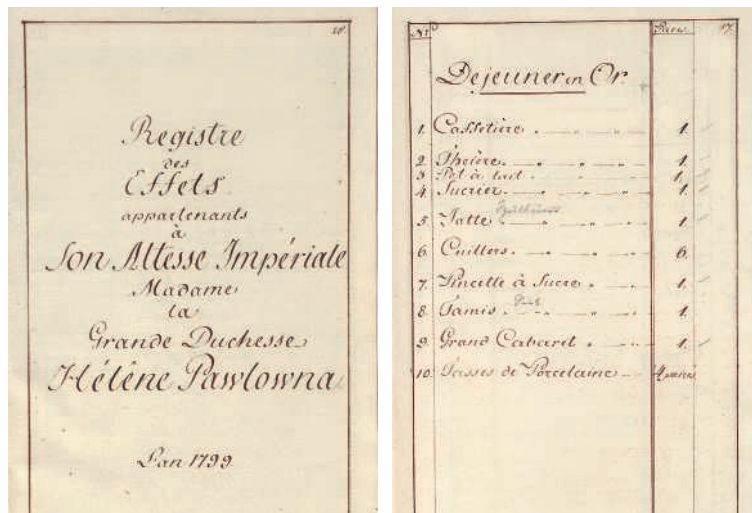 Registre
des
Effets
appartenants
à
Son Altesse Impériale
Madame
la
Grande Duchesse
Hélène Pawlowna
L'an 1799
No Pièces
Dejeuner en Or.
1. Caffetière 1.
2. Théière 1.
3 Pot à lait 1.
4. Sucrier 1.
5. Jatte 1.
6. Cuillers 6.
7. Pincette à Sucre 1.
8. Tamis 1.
9. Grand Cabaret 1.
10. Tasses de Porcelaine 4